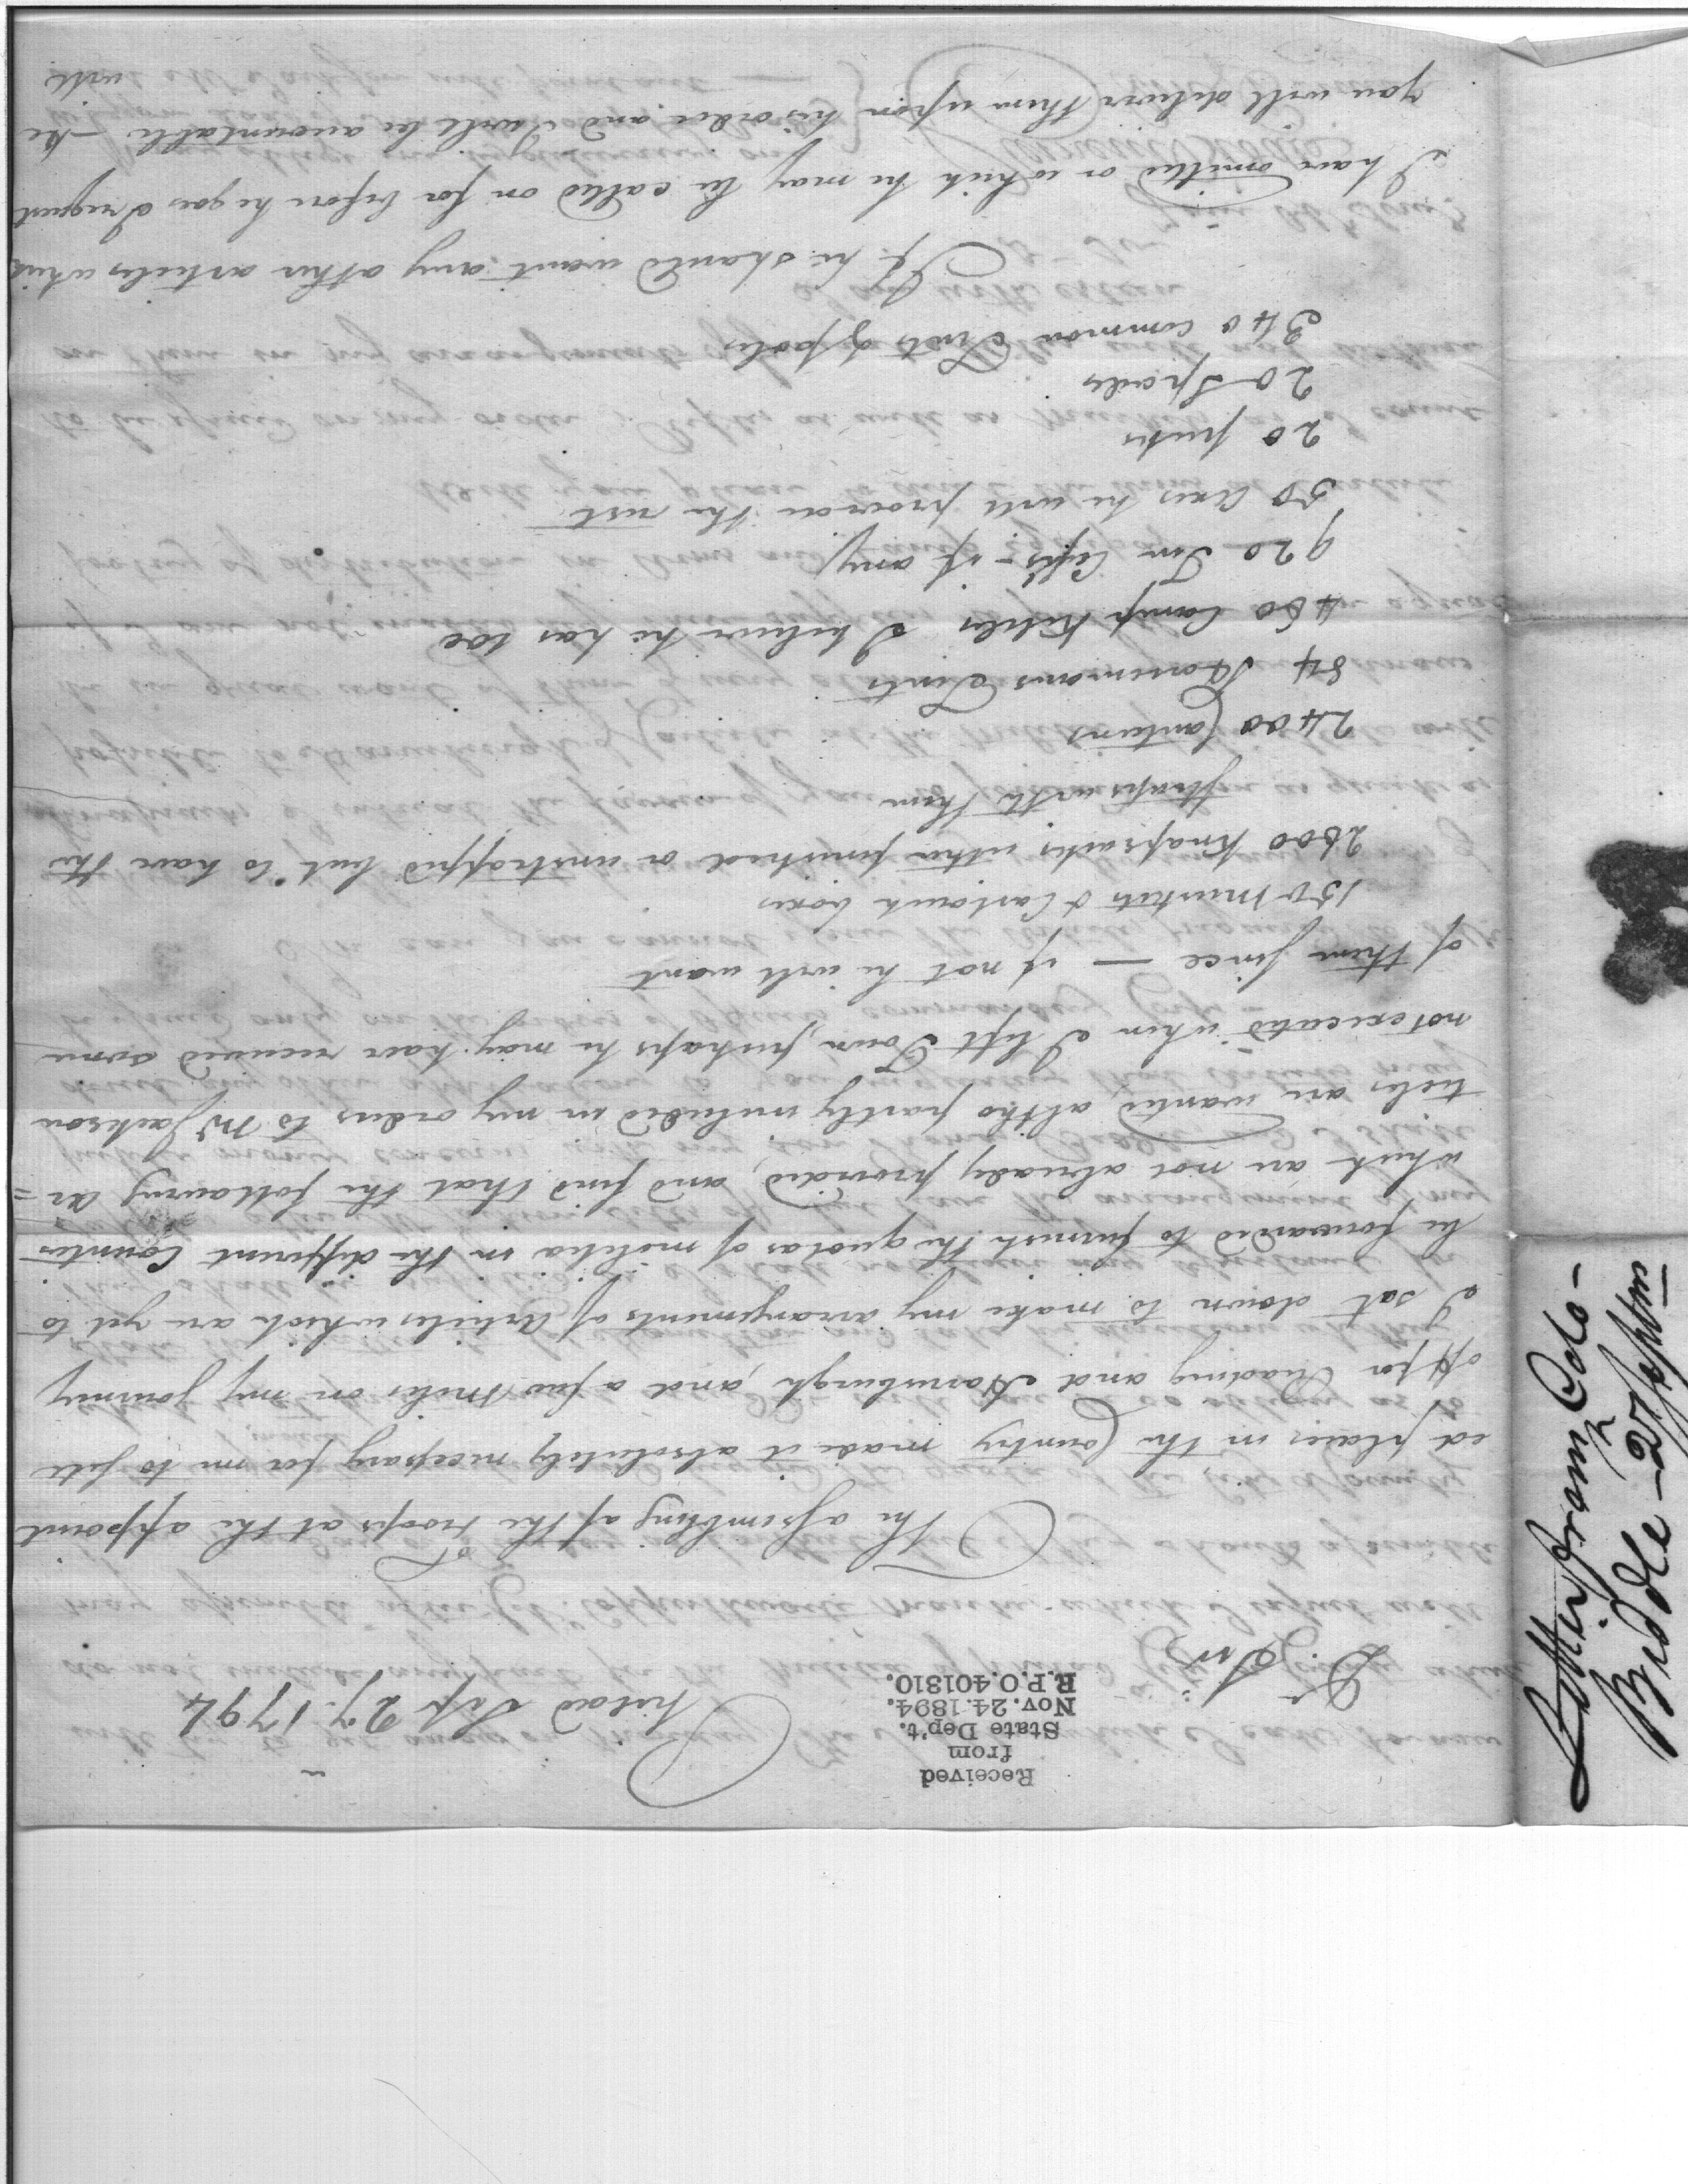 Philad Sep 27. 1794
Received
from
State Dep't.
Nov. 24. 1894.
R.P.O. 401310.
Dr. Sir
The assembling of the troops at the appoint
ed places in the Country made it absolutely necessary for me to sett
off for Reading and Harrisburgh, and a few Miles on my journey
I sat down to make my arrangements of Articles which are yet to
be forwarded to furnish the quotas of militia in the different Counties
which are not already provided, and find that the following ar =
ticles are wanted, altho partly included in my orders to Mr Jackson
not executed when I left Town, perhaps he may have received some
of them since — if not he will want
150 Muskets & Cartouch boxes
2600 Knapsacks either finished or unstrapped but to have the
straps with them
2400 Canteens
84 Horsemans Tents
480 Camp Kettles I believe he has 100
920 Tin Cups - if any
50 Axes he will procure the rest
20
20 Spades
340 common Tents & poles
If he should want any other articles which
I have omitted or which he may be called on for before he goes I request
you will deliver them upon his order and I will be accountable — he
will
Letter from Colo -
Biddle - 27 Septem